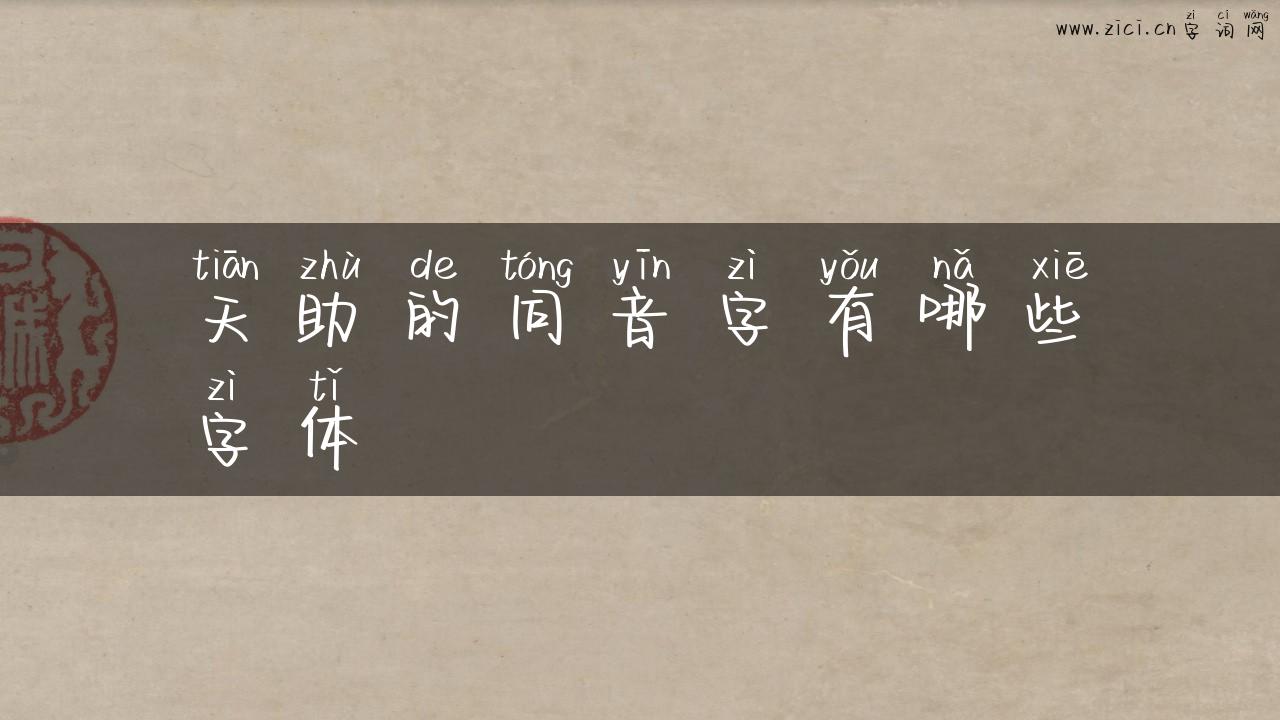 zì cí wǎng
www.zici.cn字词网
tiān zhù de tóng yīn zì yǒu nǎ xiē
天助的同音字有哪些
zì tǐ
字体